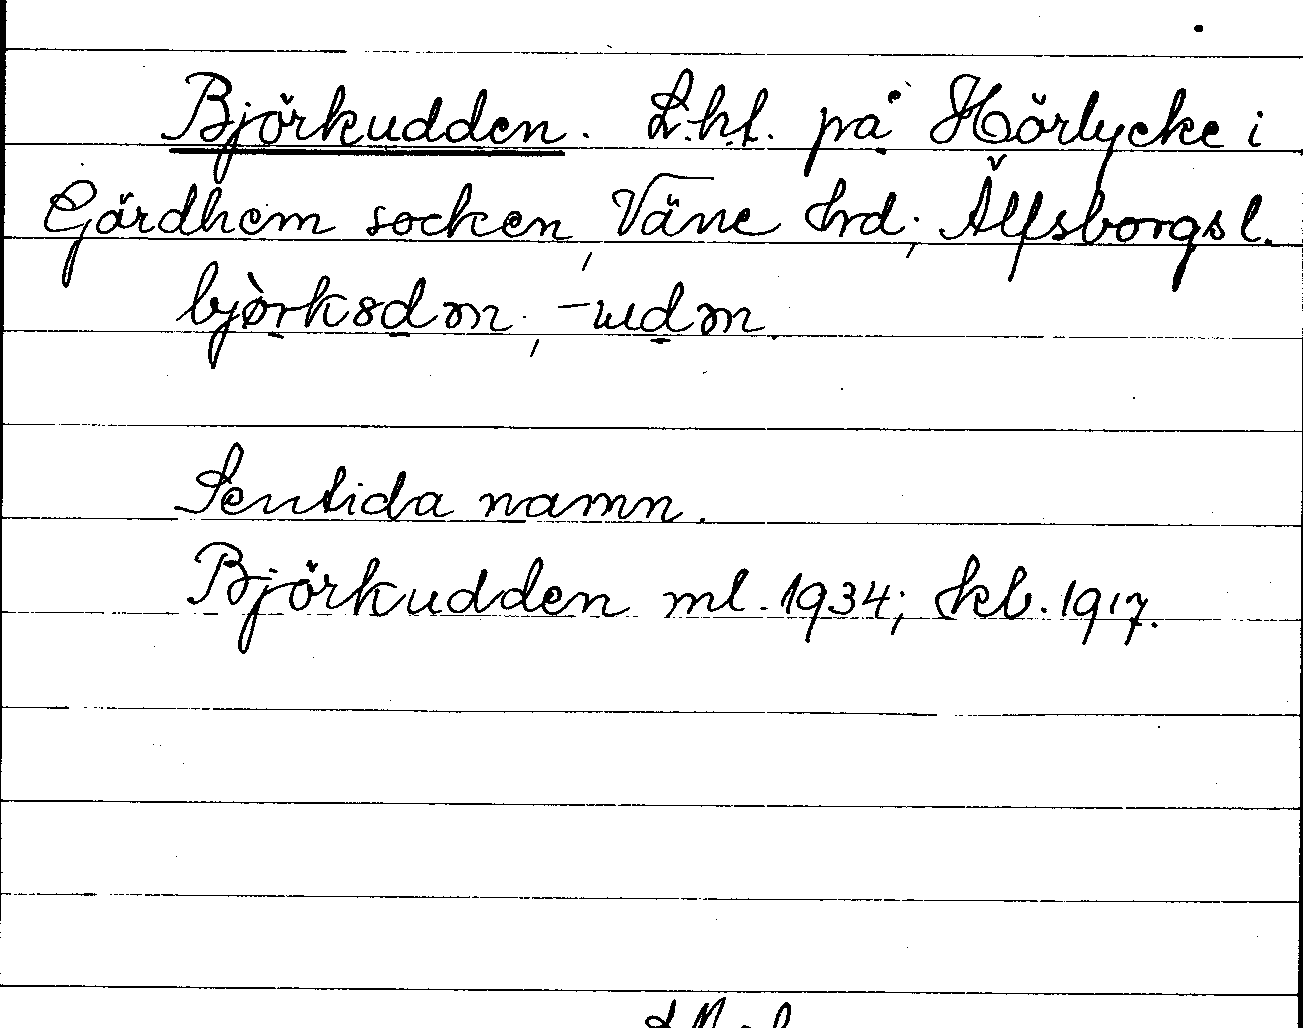 Björkudden. L.ht. på Hörlycke i
Gärdhem socken, Väne hrd; Älfsborgs l.
Sentida namn.
Björkudden ml. 1934; kb. 1917.